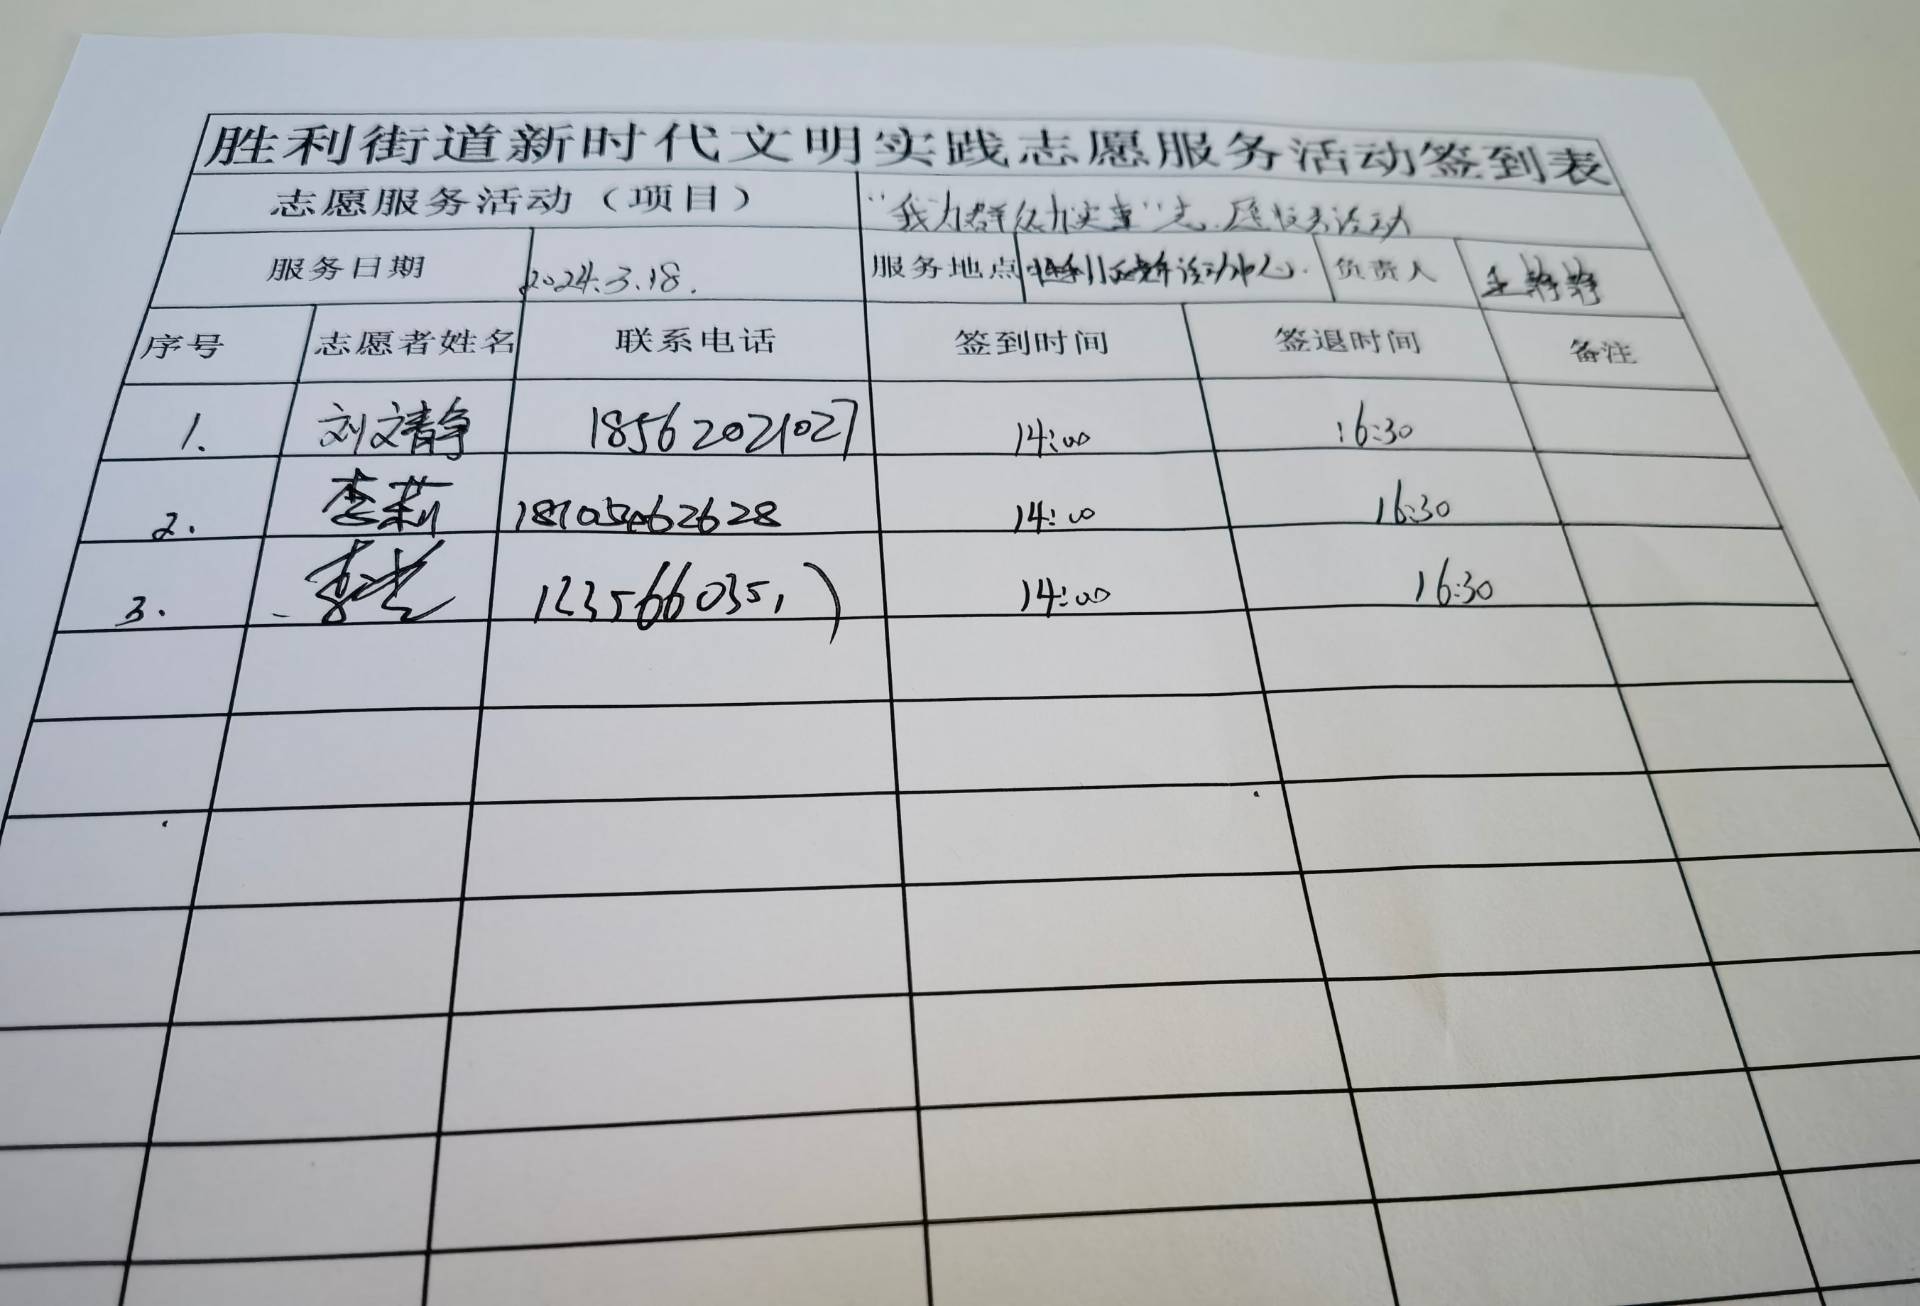 胜利街道新时代文明实践志愿服务活动签到表
志愿服务活动（项目） “我为群众办实事”志愿服务活动
服务日期 2024.3.18. 服务地点 活动中心. 负责人 王静静
序号 志愿者姓名 联系电话 签到时间 签退时间 备注
1. 刘文静 18562021027 14:00 16:30
2. 李莉 14:00 16:30
3. 李 14:00 16:30